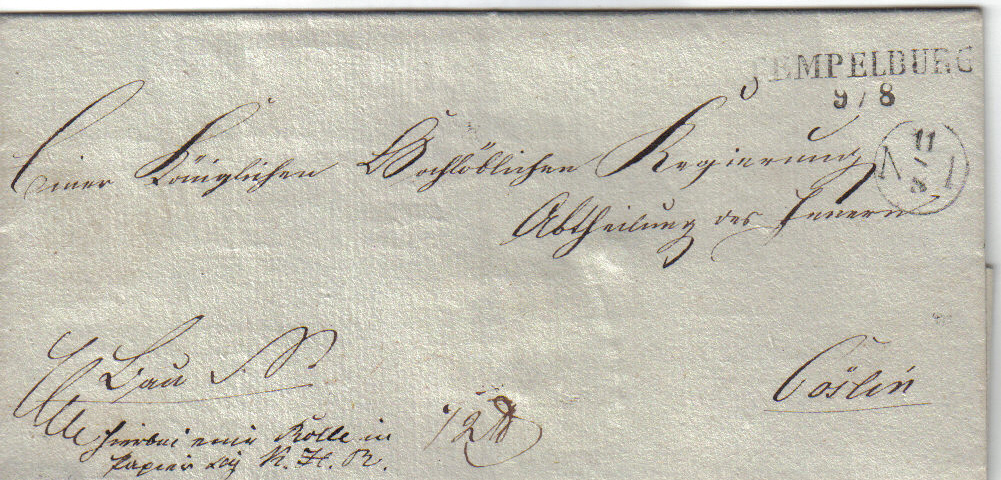 TEMPELBURG
9 / 8
11
8
Einer Königlichen Hochlöblichen Regierung
Abtheilung des Innern
Bau S.
Cöslin
hierbei eine Rolle in
Papier